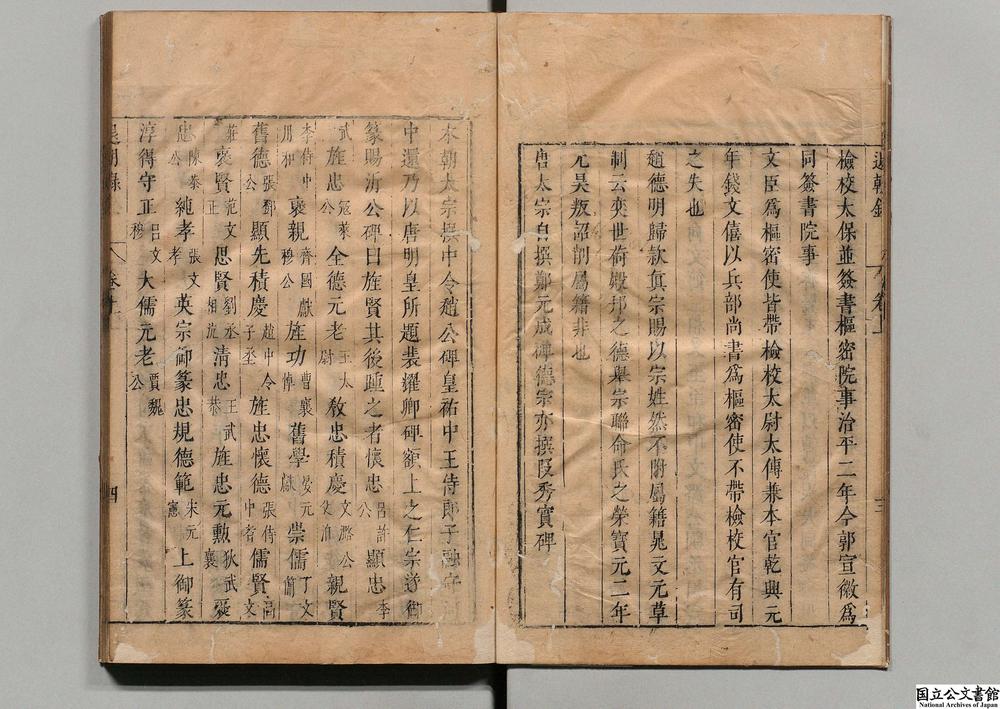 檢校太保並簽書樞密院事治平二年今郭宣徽爲
同簽書院事
文臣爲樞密使皆帶檢校太尉太傅兼本官乾興元
年錢文僖以兵部尚書爲樞密使不帶檢校官有司
之失也
趙德明歸款眞宗賜以宗姓然不附屬籍晁文元草
制云奕世荷殿邦之德舉宗聯命氏之榮寶元二年
元昊叛詔削屬籍非也
唐太宗自撰鄭元成碑德宗亦撰段秀實碑
本朝太宗撰中令趙公碑皇祐中王侍郎子融守
中還乃以唐明皇所題裴耀卿碑額上之仁宗遂御
篆賜沂公碑曰旌賢其後踵之者懷忠呂許公顯忠李
武旌忠寇萊公全德元老王太尉教忠積慶文潞公親賢
李侍中用和襃親齊國獻穆公旌功曹襄悼舊學晏元獻崇儒丁文簡
舊德張鄧公顯先積慶趙中令子丞旌忠懷德張侍中耆儒賢高文
莊襃賢范文正思賢劉丞相沆淸忠王武恭旌忠元勳狄武襄襃
忠陳恭公純孝張文孝英宗御篆忠規德範宋元憲上御篆
淳德守正呂文穆大儒元老賈魏公
四
国立公文書館
National Archives of Japan